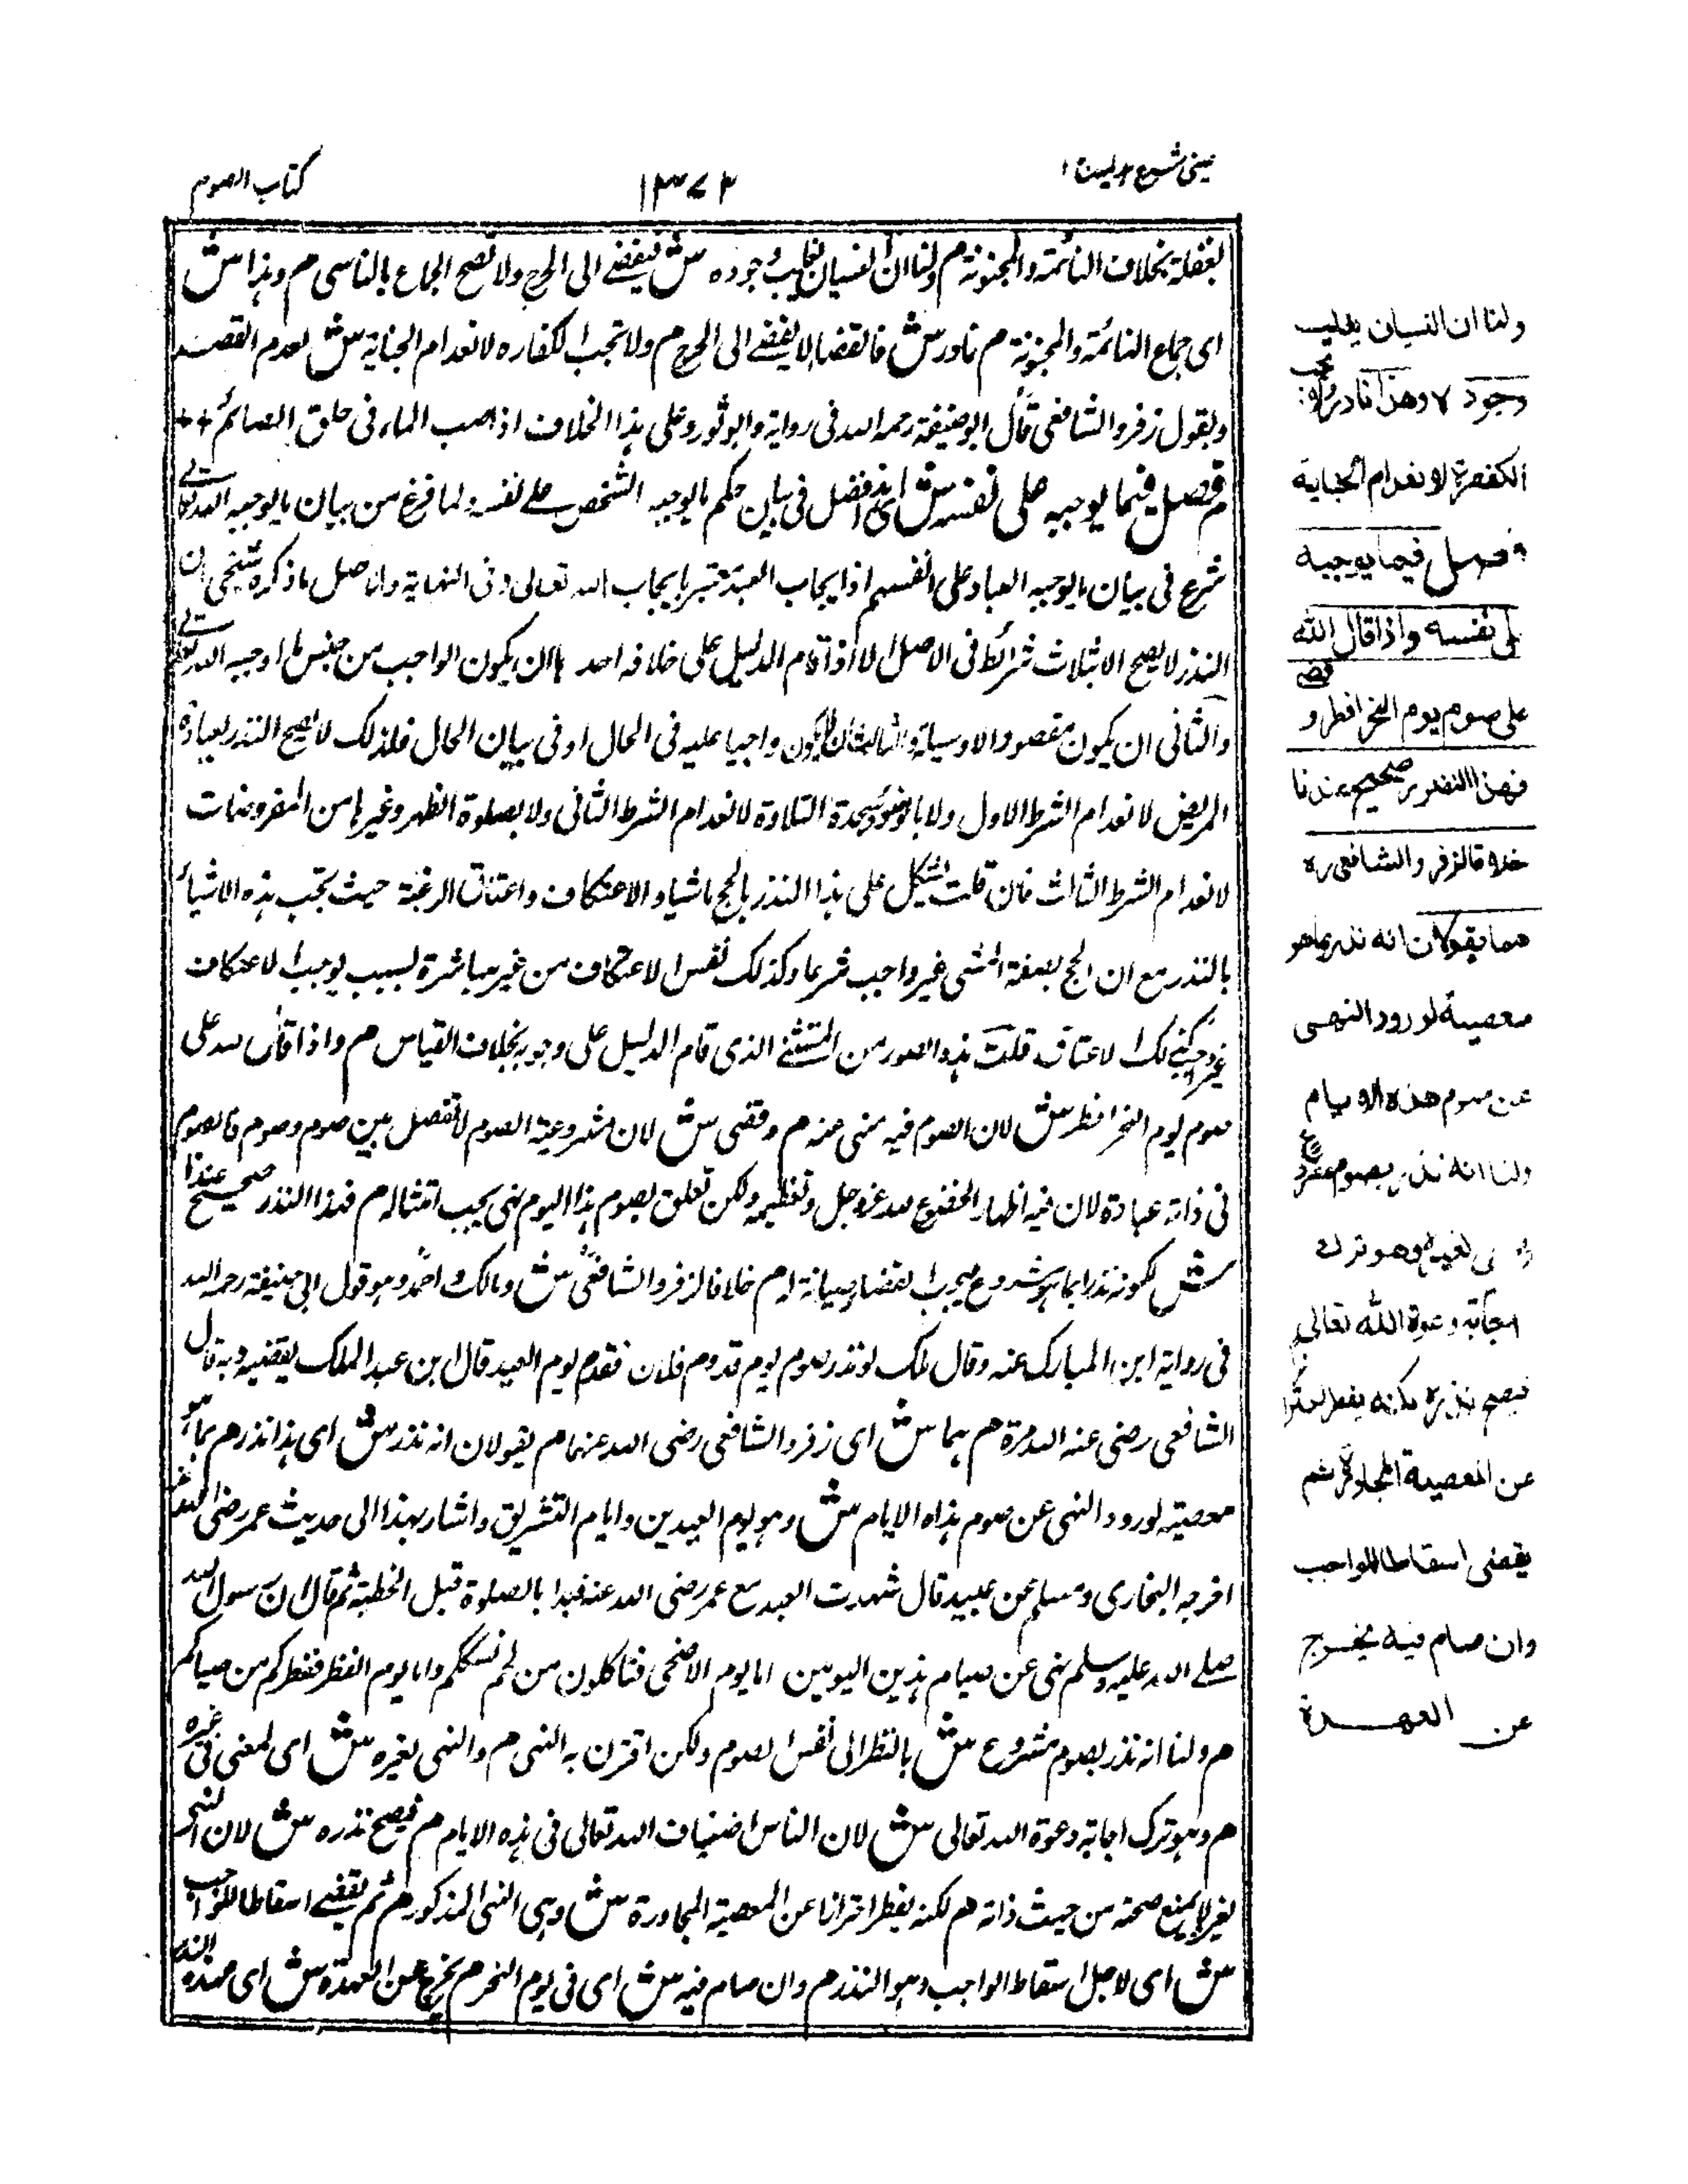 عینی شرح ہدایہ ج ۱
۱۳۷۲
کتاب الصوم
لغفلة بخلاف النائمة والمجنونة م ولنا ان النسيان يغلب وجوده ش فيفضى الى الحرج ولا يصح الجماع بالناسى م وهذا ش
اى جماع النائمة والمجنونة م نادر ش فالقضا لا يفضى الى الحرج م ولا تجب الكفاره لانعدام الجناية ش لعدم القصد
وبقول زفر والشافعى قال ابو حنيفة رحمه الله فى رواية وابو ثور وعلى هذا الخلاف اذا صب الماء فى حلق الصائم
م فصل فيما يوجبه على نفسه ش اى هذا فصل فى بيان حكم ما يوجبه الشخص على نفسه ولما فرغ من بيان ما يوجبه الله تعالى
شرع فى بيان ما يوجبه العباد على انفسهم اذ ايجاب العبد معتبر بايجاب الله تعالى وفى النهاية والاصل ما ذكره شيخى ان
النذر لا يصح الا بثلاث شرائط فى الاصل الا اذا قام الدليل على خلافه احدها ان يكون الواجب من جنس ما اوجبه الله تعالى
والثانى ان يكون مقصودا لا وسيلة والثالث ان لا يكون واجبا عليه فى الحال او فى بيان الحال فلذلك لا يصح النذر بعيادة
المريض لانعدام الشرط الاول ولا بالوضوء وسجدة التلاوة لانعدام الشرط الثانى ولا بصلوة الظهر وغيرها من المفروضات
لانعدام الشرط الثالث فان قلت يشكل على هذا النذر بالحج ماشيا والاعتكاف واعتاق الرقبة حيث تجب هذه الاشياء
بالنذر مع ان الحج بصفة المشى غير واجب شرعا وكذلك نفس الاعتكاف من غير مباشرة لسبب يوجب الاعتكاف
وكذلك الاعتاق قلت هذه الصور من المستثنى الذى قام الدليل على وجوبه بخلاف القياس م واذا قال لله على
صوم يوم النحر افطر ش لان الصوم فيه منهى عنه م وقضى ش لان مشروعية الصوم لا تفصل بين صوم وصوم فالصوم
فى ذاته عبادة لان فيه اظهار الخضوع لله عز وجل وتعظيمه ولكن تعلق بصوم هذا اليوم نهى يجب امتثاله م فهذا النذر صحيح عندنا
ش لكونه نذرا بما هو مشروع فيجب القضا صيانة له م خلافا لزفر والشافعى ش ومالك واحمد وهو قول ابى حنيفة رحمه الله
فى رواية ابن المبارك عنه وقال ملك لو نذر صوم يوم قدوم فلان فقدم يوم العيد قال ابن عبد الملك يقضيه وبه قال
الشافعى رضى عنه الله مرة م هما ش اى زفر والشافعى رضى الله عنهما م يقولان انه نذر ش اى هذا نذر م بما هو
معصية لورود النهى عن صوم هذه الايام ش وهو يوم العيدين وايام التشريق واشار بهذا الى حديث عمر رضى الله عنه
اخرجه البخارى ومسلم عن عبيد قال شهدت العيد مع عمر رضى الله عنه فبدا بالصلوة قبل الخطبة ثم قال ان رسول الله
صلى الله عليه وسلم نهى عن صيام هذين اليومين اما يوم الاضحى فتاكلون من لحم نسككم واما يوم الفطر ففطركم من صيامكم
م ولنا انه نذر بصوم مشروع ش بالنظر الى نفس الصوم ولكن اقترن به النهى م والنهى لغيره ش اى لمعنى فى غيره
م وهو ترك اجابة دعوة الله تعالى ش لان الناس اضياف الله تعالى فى هذه الايام م فيصح نذره ش لان النهى
لغيره لا يمنع صحته من حيث ذاته م لكنه يفطر احترازا عن المعصية المجاورة ش وهى النهى المذكور م ثم يقضى اسقاطا للواجب
ش اى لاجل اسقاط الواجب وهو النذر م وان صام فيه ش اى فى يوم النحر م يخرج عن العهدة ش اى عهدة النذر
ولنا ان النسيان يغلب
وجوده وهذا نادر ولا تجب
الكفارة لانعدام الجناية
فصل فيما يوجبه
على نفسه واذا قال لله
على صوم يوم النحر افطر و
قضى
فهذا النذر صحيح عندنا
خلافا لزفر والشافعى ره
هما يقولان انه نذر بما هو
معصية لورود النهى
عن صوم هذه الايام
ولنا انه نذر بصوم مشروع
والنهى لغيره وهو ترك
اجابة دعوة الله تعالى
فيصح نذره لكنه يفطر احترازا
عن المعصية المجاورة ثم
يقضى اسقاطا للواجب
وان صام فيه يخرج
عن العهدة